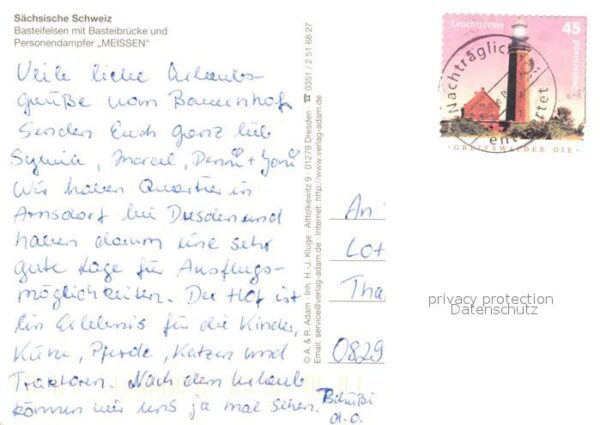 Sächsische Schweiz
Basteifelsen mit Basteibrücke und
Personendampfer „MEISSEN"
Viele liebe Urlaubs-
grüße vom Bauernhof
Senden Euch ganz lieb
Sylvia, Marcel, Denni +
Wir haben Quartier in
Arnsdorf bei Dresden und
haben darum eine sehr
gute Lage für Ausflugs-
möglichkeiten. Der Hof ist
ein Erlebnis für die Kinder,
Kühe, Pferde, Katzen und
Traktoren. Nach dem Urlaub
können wir uns ja mal sehen.
d.o.
© A. & R. Adam - Inh. H.-J. Kluge - Alttolkewitz 9 · 01279 Dresden · ☎ 0351 / 2 51 68 27
Email: service@verlag-adam.de · Internet: http://www.verlag-adam.de
Leuchttürme
45
Deutschland
GREIFSWALDER OIE
Nachträglich
entwertet
An
Lot
Tha
0829
privacy protection
Datenschutz